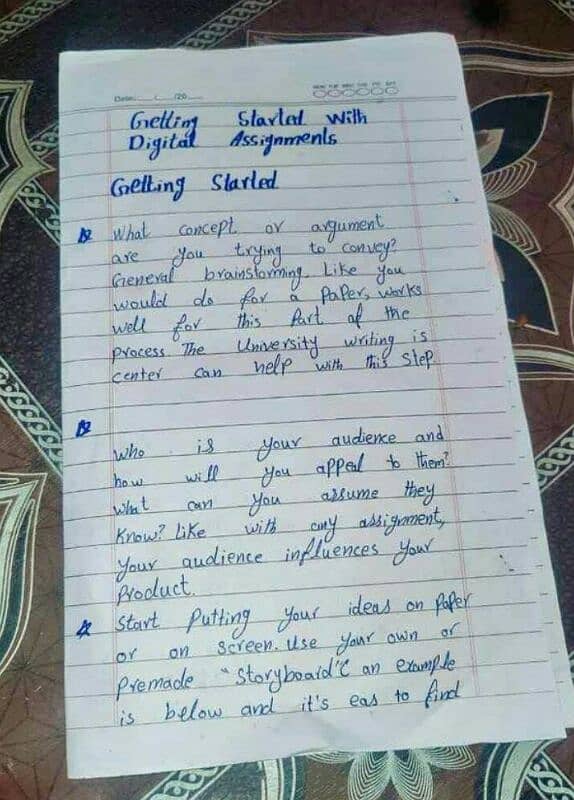 Date: / /20
MON TUE WED THU FRI SAT
Getting Started With
Digital Assignments
Getting Started
What concept or argument
are you trying to convey?
General brainstorming. Like you
would do for a Paper, works
well for this Part of the
Process. The University writing is
center can help with this step.
Who is your audience and
how will you appeal to them?
what can you assume they
know? Like with any assignment,
your audience influences your
Product.
Start Putting your ideas on paper
or on screen. Use your own or
Premade "Storyboard"C an example
is below and it's eas to find